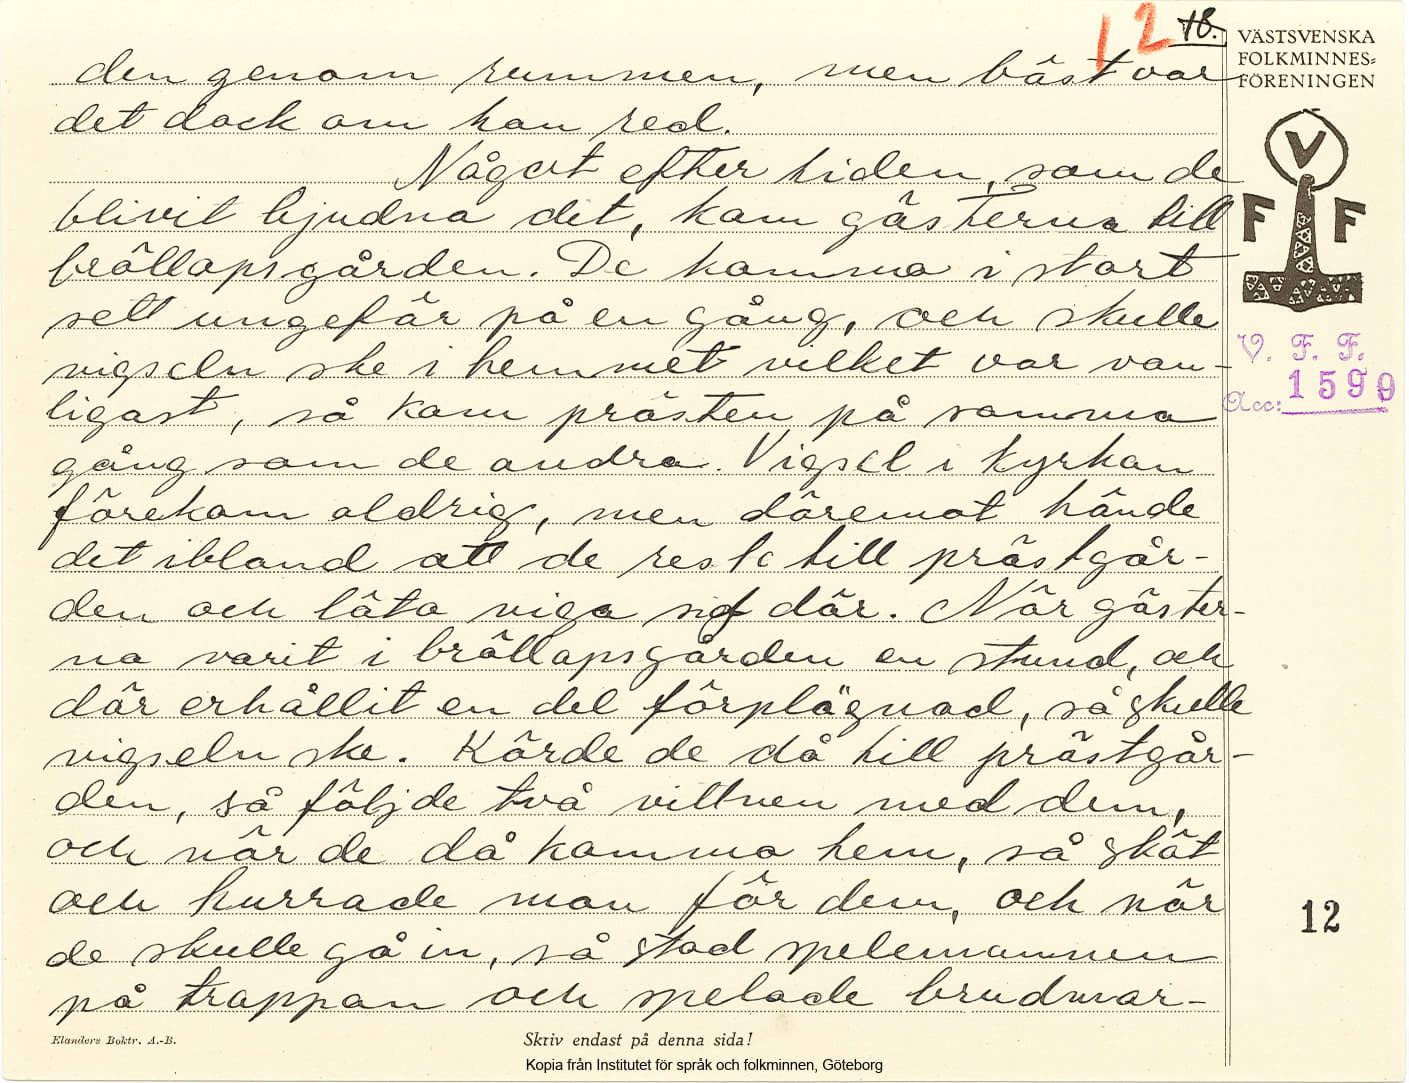 12 18.
VÄSTSVENSKA
FOLKMINNES=
FÖRENINGEN
den genom rummen, men bäst var
det dock om han red.
Något efter tiden, som de
blivit bjudna dit, kom gästerna till
bröllopsgården. De kommo i stort
sett ungefär på en gång, och skulle
vigseln ske i hemmet vilket var van-
ligast, så kom prästen på samma
gång som de andra. Vigsel i kyrkan
förekom aldrig, men däremot hände
det ibland att de reste till prästgår-
den och läto viga sig där. När gäster-
na varit i bröllopsgården en stund, och
där erhållit en del förplägnad, så skulle
vigseln ske. Körde de då till prästgår-
den, så följde två vittnen med dem,
och när de då kommo hem, så sköt
och hurrade man för dem, och när
de skulle gå in, så stod spelemannen
på trappan och spelade brudmar-
V
F F
V. F. F.
Acc: 1599
12
Elanders Boktr. A.-B.
Skriv endast på denna sida!
Kopia från Institutet för språk och folkminnen, Göteborg